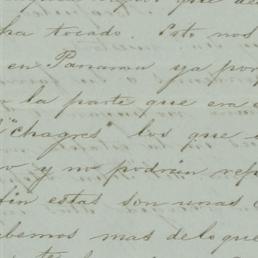 que de
ha tocado. Esto nos
en Panama ya por
la parte que era
"chagres" los que
y no podrán rep
fin estas son unas
abemos mas de lo que